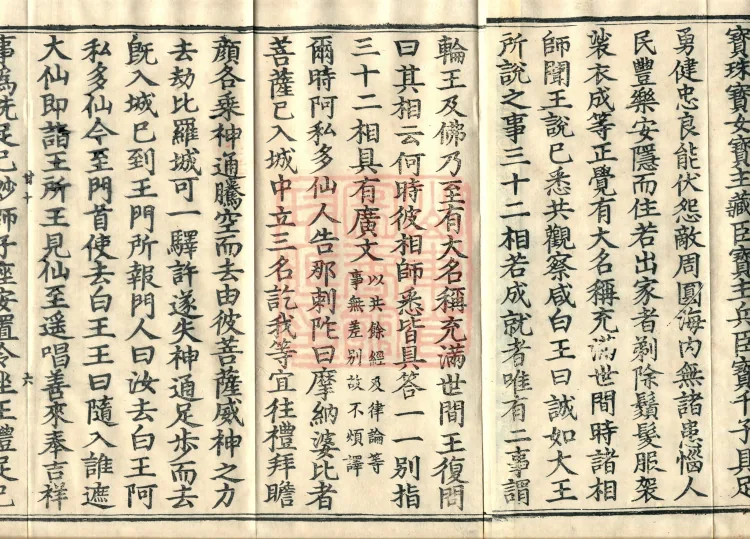 寶珠寶女寶主藏臣寶主兵臣寶千子具足
勇健忠良能伏怨敵周圓海內無諸患惱人
民豐樂安隱而住若出家者剃除鬚髮服袈
裟衣成等正覺有大名稱充滿世間時諸相
師聞王說已悉共觀察咸白王曰誠如大王
所說之事三十二相若成就者唯有二事謂
輪王及佛乃至有大名稱充滿世間王復問
曰其相云何時彼相師悉皆具答一一別指
三十二相具有廣文
以共餘經及律論等
事無差別故不煩譯
爾時阿私多仙人告那剌陀曰摩納婆比者
菩薩已入城中立三名訖我等宜往禮拜瞻
顏各乘神通騰空而去由彼菩薩威神之力
去劫比羅城可一驛許遂失神通足步而去
既入城已到王門所報門人曰汝去白王阿
私多仙今至門首使去白王王曰隨入誰遮
大仙即詣王所王見仙至遙唱善來奉吉祥
甘十 六
事為洗足已妙師子座安置令坐王禮足已